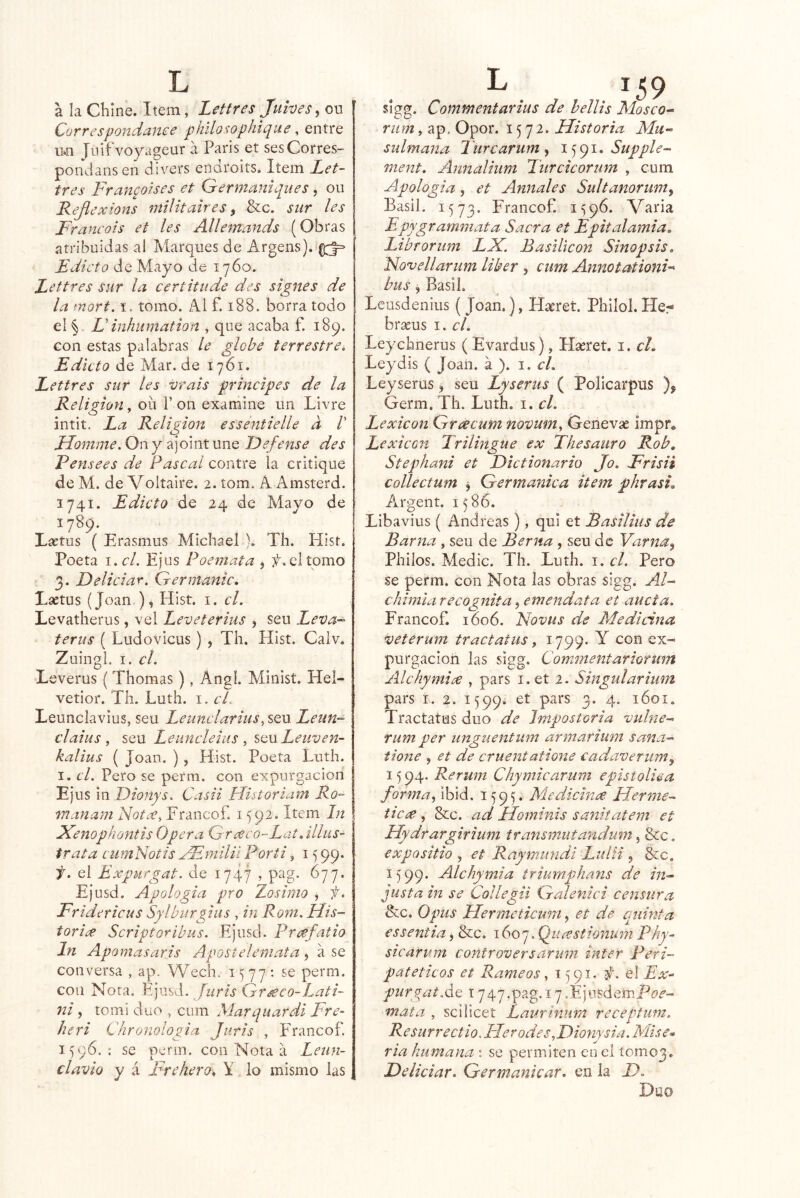 L
à la Chine. Item, Lettres Juives, ou
Correspondance philosophique, entre
un Juif voyageur à Paris et ses Corres-
pondans en divers endroits. Item Let-
tres Françoises et Germaniques, ou
Reflexions militaires, &c. sur les
Francois et les Allemands (Obras
atribuidas al Marques de Argens). ☞
Edicto de Mayo de 1760.
Lettres sur la certitude des signes de
la mort. 1. tomo. Al f. 188. borra todo
el §. L'inhumation, que acaba f. 189.
con estas palabras le globe terrestre.
Edicto de Mar. de 1761.
Lettres sur les vrais principes de la
Religion, où l'on examine un Livre
intit. La Religion essentielle à l'
Homme. On y ajoint une Defense des
Pensees de Pascal contre la critique
de M. de Voltaire. 2. tom. A Amsterd.
1741. Edicto de 24 de Mayo de
1789.
Lætus (Erasmus Michael). Th. Hist.
Poeta 1. cl. Ejus Poemata, ꝟ. el tomo
3. Deliciar. Germanic.
Lætus (Joan.), Hist. 1. cl.
Levatherus, vel Leveterius, seu Leva-
terus (Ludovicus), Th. Hist. Calv.
Zuingl. 1. cl.
Leverus (Thomas), Angl. Minist. Hel-
vetior. Th. Luth. 1. cl.
Leunclavius, seu Leunclarius, seu Leun-
claius, seu Leuncleius, seu Leuven-
kalius (Joan.), Hist. Poeta Luth.
1. cl. Pero se perm. con expurgacion
Ejus in Dionys. Casii Historiam Ro-
manam Notæ, Francof. 1592. Item In
Xenophontis Opera Græco-Lat. illus-
trata cum Notis Æmilii Porti, 1599.
ꝟ. el Expurgat. de 1747, pag. 677.
Ejusd. Apologia pro Zosimo, ꝟ.
Fridericus Sylburgius, in Rom. His-
toriæ Scriptoribus. Ejusd. Præfatio
In Apomasaris Apostelemata, à se
conversa, ap. Wech. 1577: se perm.
con Nota. Ejusd. Juris Græco-Lati-
ni, tomi duo, cum Marquardi Fre-
heri Chronologia Juris, Francof.
1596.: se perm. con Nota à Leun-
clavio y á Frehero. Y lo mismo las
L 159
sigg. Commentarius de bellis Mosco-
rum, ap. Opor. 1572. Historia Mu-
sulmana Turcarum, 1591. Supple-
ment. Annalium Turcicorum, cum
Apologia, et Annales Sultanorum,
Basil. 1573. Francof. 1596. Varia
Epygrammata Sacra et Epitalamia.
Librorum LX. Basilicon Sinopsis.
Novellarum liber, cum Annotationi-
bus, Basil.
Leusdenius (Joan.), Hæret. Philol. He-
bræus 1. cl.
Leychnerus (Evardus), Hæret. 1. cl.
Leydis (Joan. à). 1. cl.
Leyserus, seu Lyserus (Policarpus),
Germ. Th. Luth. 1. cl.
Lexicon Græcum novum, Genevæ impr.
Lexicon Trilingue ex Thesauro Rob.
Stephani et Dictionario Jo. Frisii
collectum, Germanica item phrasi.
Argent. 1586.
Libavius (Andreas), qui et Basilius de
Barna, seu de Berna, seu de Varna,
Philos. Medic. Th. Luth. 1. cl. Pero
se perm. con Nota las obras sigg. Al-
chimia recognita, emendata et aucta.
Francof. 1606. Novus de Medicina
veterum tractatus, 1799. Y con ex-
purgacion las sigg. Commentariorum
Alchymiæ, pars 1. et 2. Singularium
pars 1. 2. 1599. et pars 3. 4. 1601.
Tractatus duo de Impostoria vulne-
rum per unguentum armarium sana-
tione, et de cruentatione cadaverum,
1594. Rerum Chymicarum epistolica
forma, ibid. 1595. Medicinæ Herme-
ticæ, &c. ad Hominis sanitatem et
Hydrargirium transmutandum, &c.
expositio, et Raymundi Lulii, &c.
1599. Alchymia triumphans de in-
justa in se Collegii Galenici censura
&c. Opus Hermeticum, et de quinta
essentia, &c. 1607. Quæstionum Phy-
sicarum controversarum inter Peri-
pateticos et Rameos, 1591. ꝟ. el Ex-
purgat. de 1747. pag. 17. Ejusdem Poe-
mata, scilicet Laurinum receptum.
Resurrectio. Herodes, Dionysia. Mise-
ria humana: se permiten en el tomo 3.
Deliciar. Germanicar. en la D.
Duo